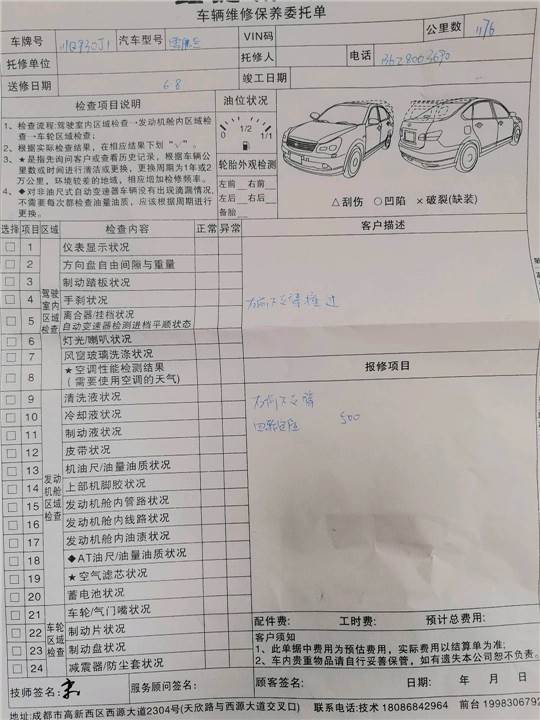 车辆维修保养委托单
车牌号 汽车型号 VIN码 公里数
托修单位 托修人 电话
送修日期 6.8 竣工日期
检查项目说明
1、检查流程:驾驶室内区域检查→发动机舱内区域检
查→车轮区域检查;
2、根据实际检查结果,在相应结果下划“√”。
3、★是指先询问客户或查看历史记录,根据车辆公
里数或时间进行清洁或更换,更换周期为1年或2
万公里,环境较差的地域,相应增加检修频率。
4、◆对非油尺式自动变速器车辆没有出现滴漏情况,
不需要每次都检查油量油质,应该根据周期进行
更换。
油位状况
0 1/2 1/1
轮胎外观检测
左前 右前
左后 右后
备胎
△刮伤 ○凹陷 ×破裂(缺装)
选择 项目 区域 检查内容 正常 异常 客户描述
驾驶室内区域检查
1 仪表显示状况
2 方向盘自由间隙与重量
3 制动踏板状况
4 手刹状况
5 离合器/挂档状况
自动变速器检测进档平顺状态
6 灯光/喇叭状况
7 风窗玻璃洗涤状况
8 ★空调性能检测结果
(需要使用空调的天气)
报修项目
发动机舱区域检查
9 清洗液状况
10 冷却液状况
500
11 制动液状况
12 皮带状况
13 机油尺/油量油质状况
14 上部机脚胶状况
15 发动机舱内管路状况
16 发动机舱内线路状况
17 发动机舱内油渍状况
18 ◆AT油尺/油量油质状况
19 ★空气滤芯状况
20 蓄电池状况
车轮区域检查
21 车轮/气门嘴状况
22 制动片状况
23 制动盘状况
24 减震器/防尘套状况
配件费: 工时费: 预计总费用:
客户须知
1、此单据中费用为预估费用,实际费用以结算单为准;
2、车内贵重物品请自行妥善保管,如有遗失本公司恕不负责。
技师签名: 服务顾问签名: 顾客签名: 日期: 年 月 日
地址:成都市高新西区西源大道2304号(天欣路与西源大道交叉口) 联系电话:技术 18086842964 前台 1998306792